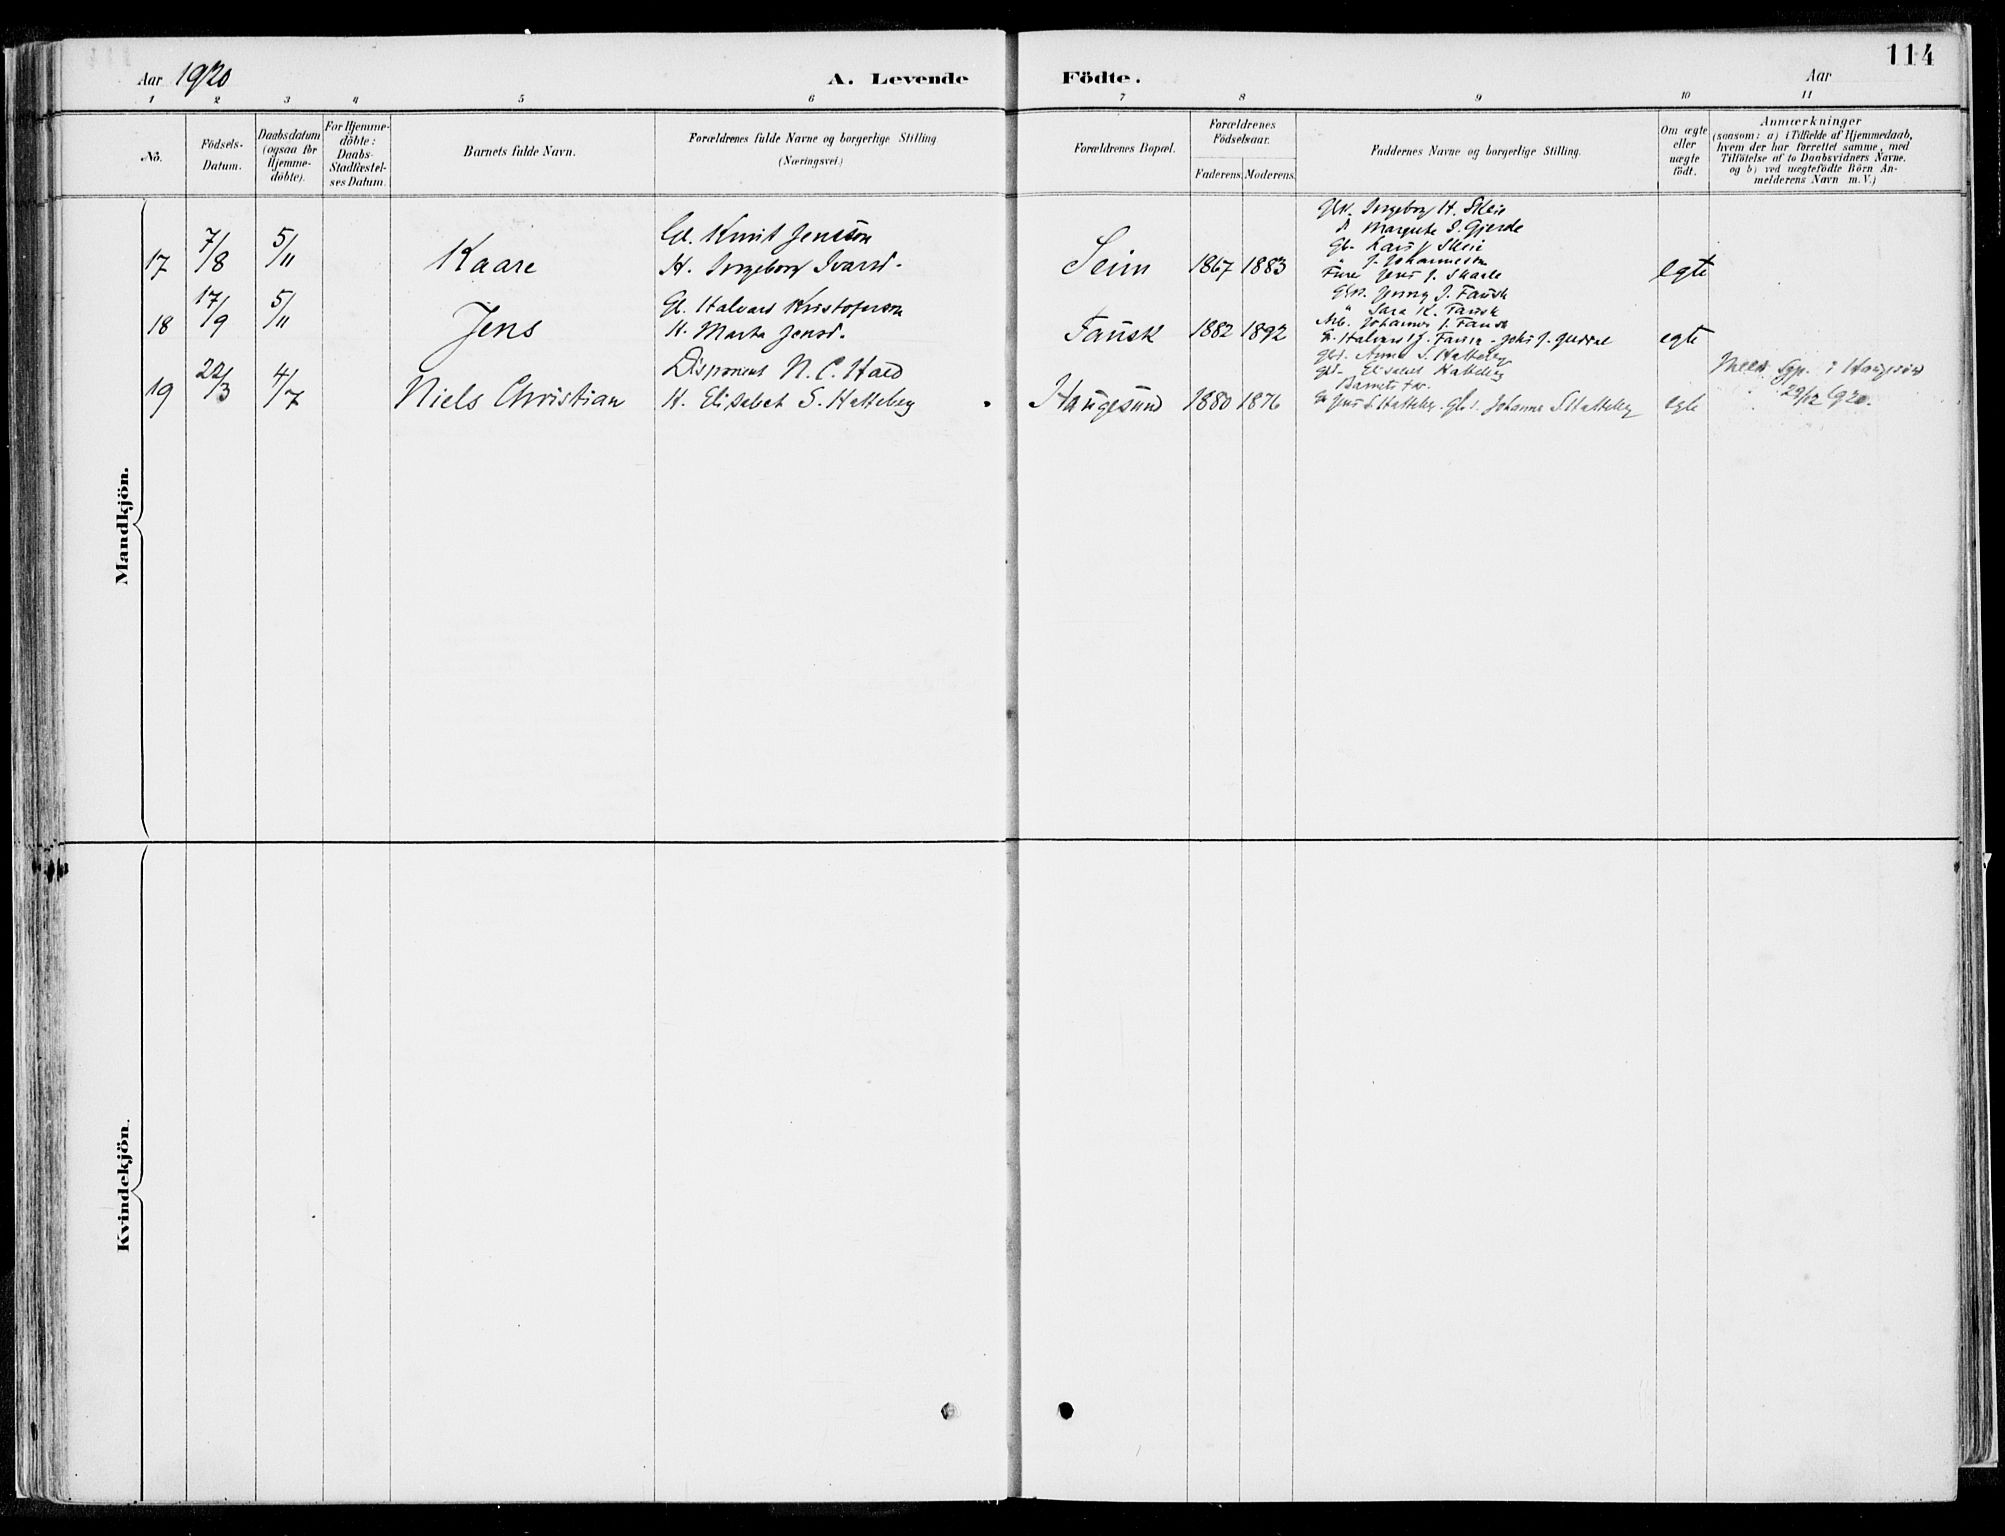 114
Aar 1920
A. Levende Födte.
Aar
1 2 3 4 5 6 7 8 9 10 11
No.
Födsels-Datum.
Daabsdatum (ogsaa for Hjemme-döbte).
For Hjemme-döbte: Daabs-Stadfæstel-ses Datum.
Barnets fulde Navn.
Forældrenes fulde Navne og borgerlige Stilling
(Næringsvei.)
Forældrenes Bopæl.
Forældrenes Födselsaar.
Faderens. Moderens.
Faddernes Navne og borgerlige Stilling.
Om ægte eller uægte födt.
Anmærkninger
(saasom: a) i Tilfælde af Hjemmedaab,
hvem der har forrettet samme, med
Tilföielse af to Daabsvidners Navne.
og b) ved uægtefödte Börn An-
melderens Navn m. V.)
Mandkjön.
17 7/8 5/11 Kaare
Gb. Knut Jensson
H. Ingeborg Ivarsd.
Seim 1867 1883
Gbk. Ingeborg H. Skeie
Margrete S. Gjerde
Gb. Lars Skeie
" J. Johannessen
Jens J. Skaale
egte
18 17/9 5/11 Jens
Gb. Halvard Kristoferson
H. Marta Jensd.
Fausk 1882 1892
Gbk. Jenny J. Fausk
" Sara K. Fausk
Arb. Johannes J. Fausk
Halvard J. Fausk
egte
19 22/3 4/7 Niels Christian
Disponent N. C. Hald
H. Elisabet S. Hatteberg
Haugesund 1880 1876
Gbd. Anna S. Hatteberg
Gbd. Elisabet Hatteberg
Barnets far
Jens S. Hatteberg. Gbd. Johanna S Hatteberg
egte
Meld. Sgp. i Haugesund
29/12 1920.
Kvindekjön.